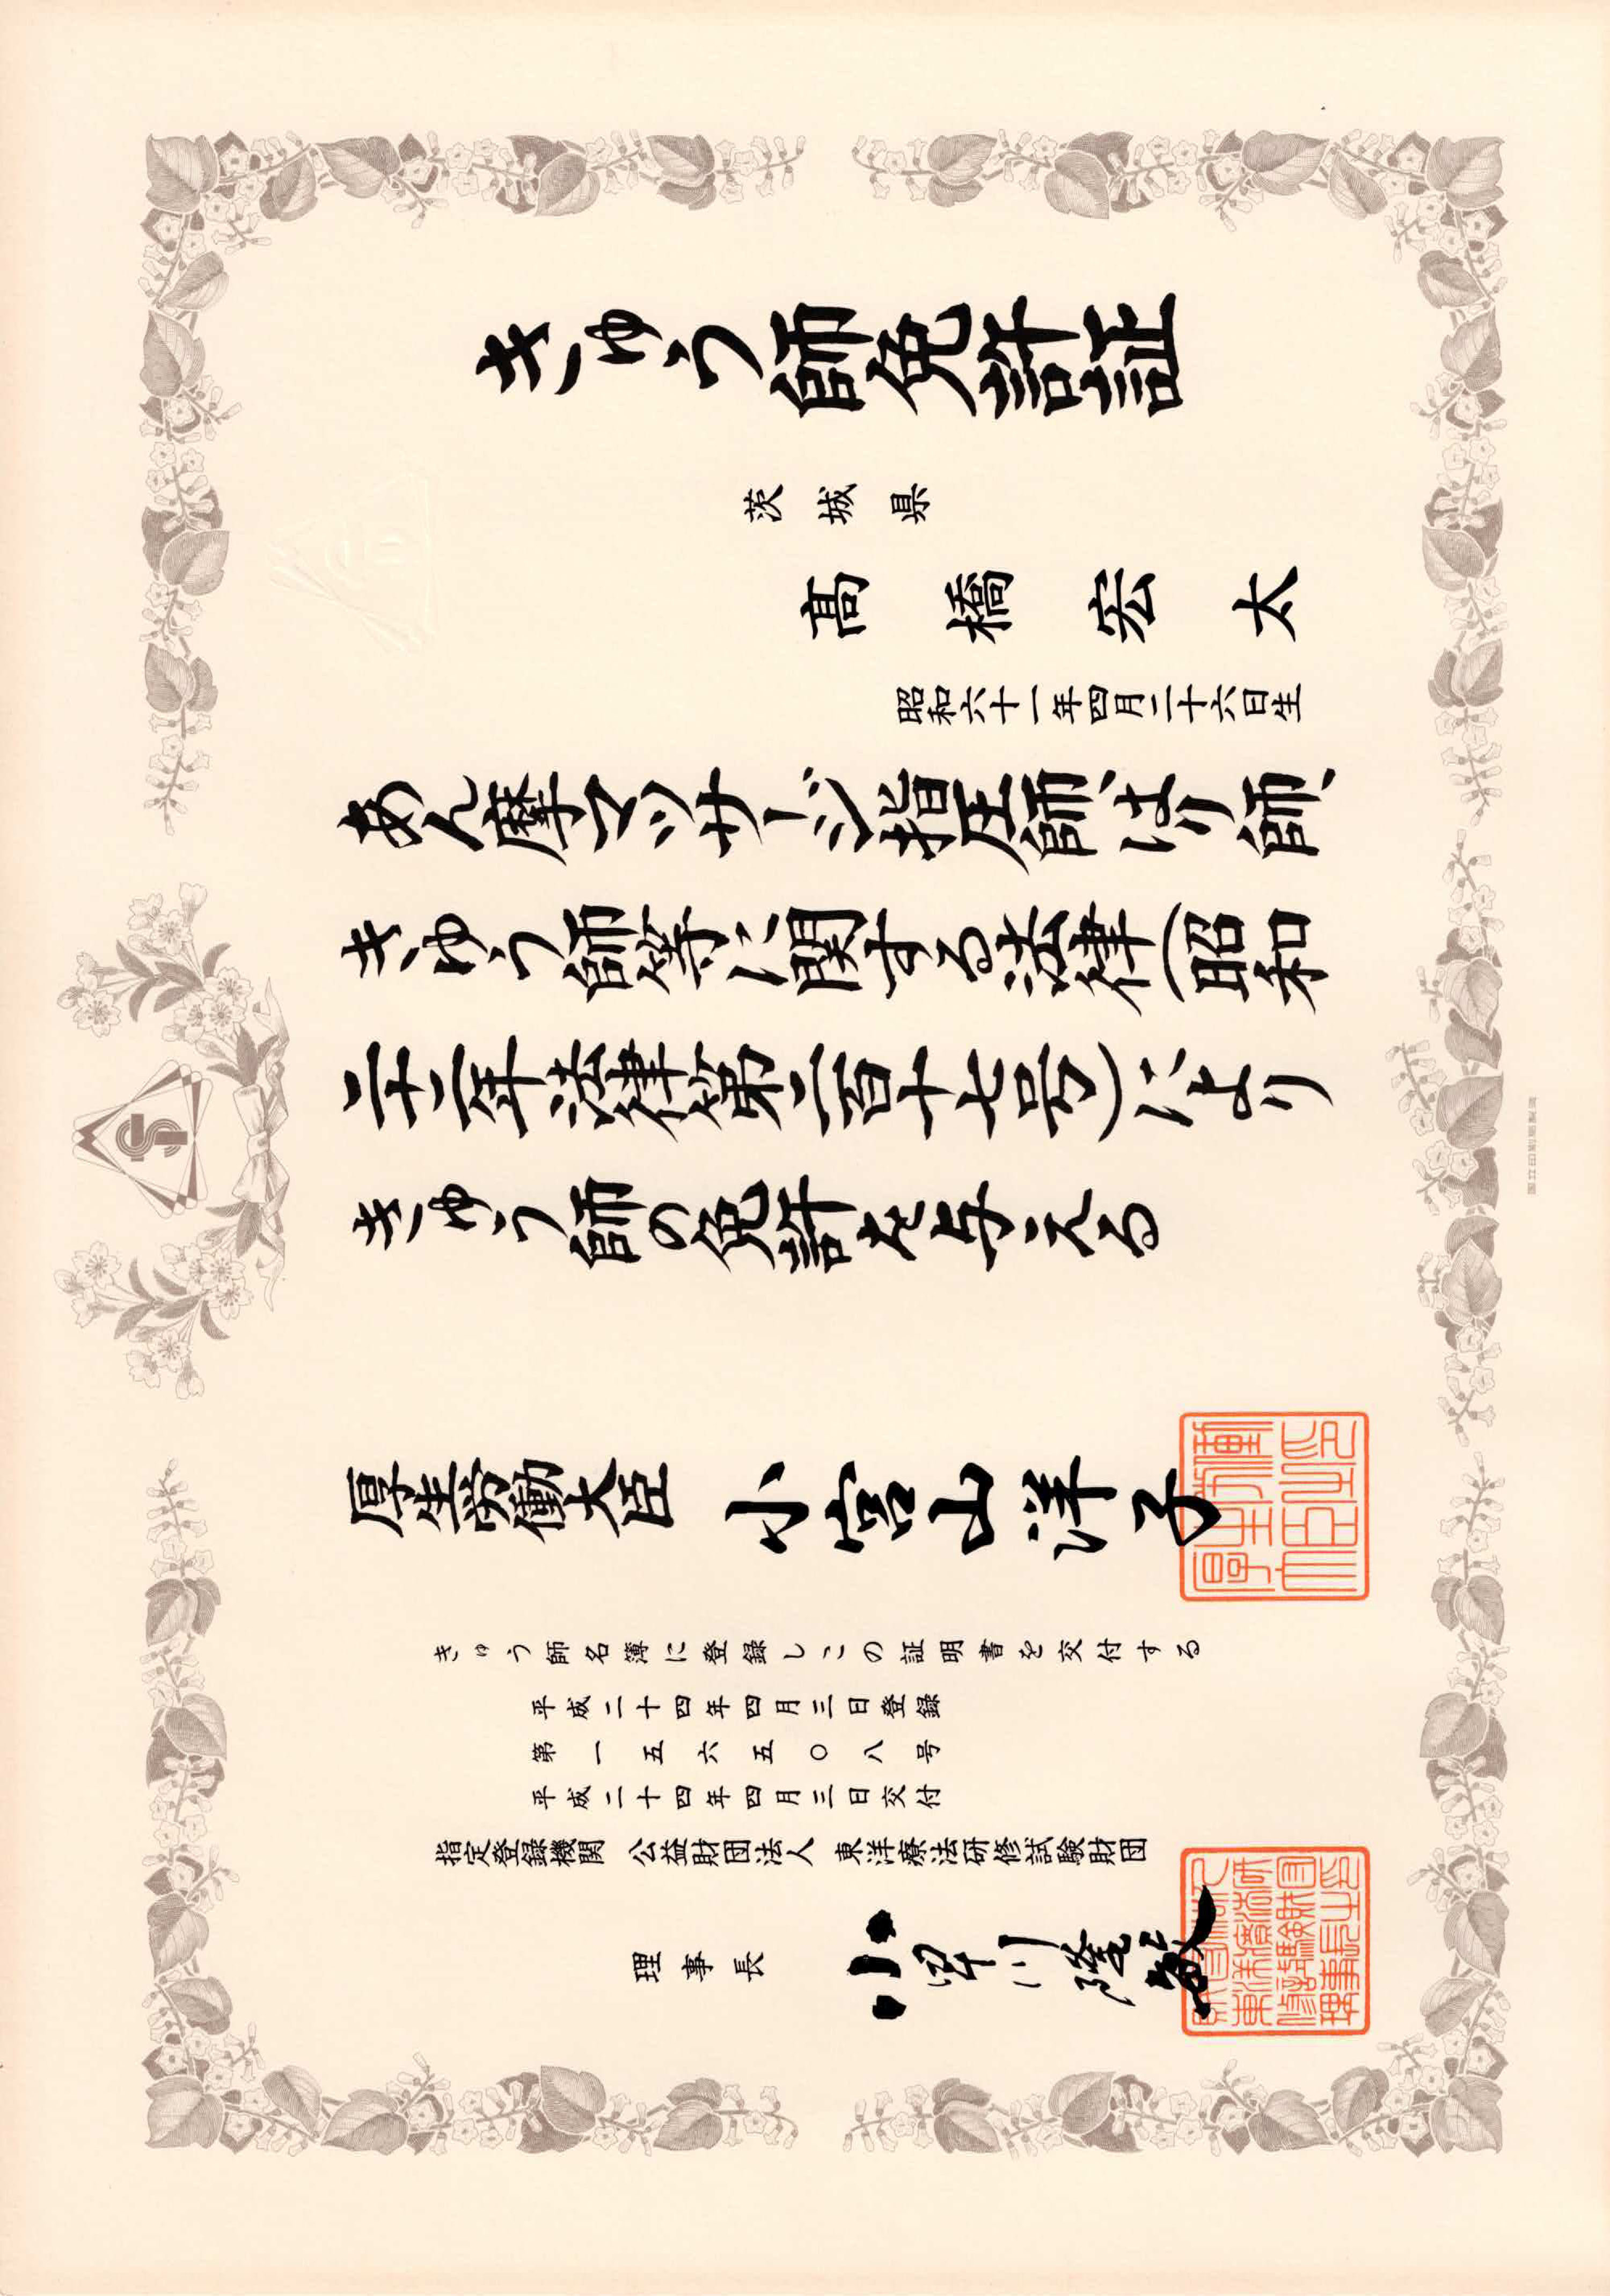 きゅう師免許証
茨城県
髙橋宏太
昭和六十一年四月二十六日生
あん摩マツサージ指圧師、はり師、
きゆう師等に関する法律(昭和
二十二年法律第二百十七号)により
きゆう師の免許を与える
厚生労働大臣 小宮山洋子
厚生労働大臣之印
きゅう師名簿に登録しこの証明書を交付する
平成二十四年四月三日登録
第一五六五〇八号
平成二十四年四月三日交付
指定登録機関 公益財団法人 東洋療法研修試験財団
理事長